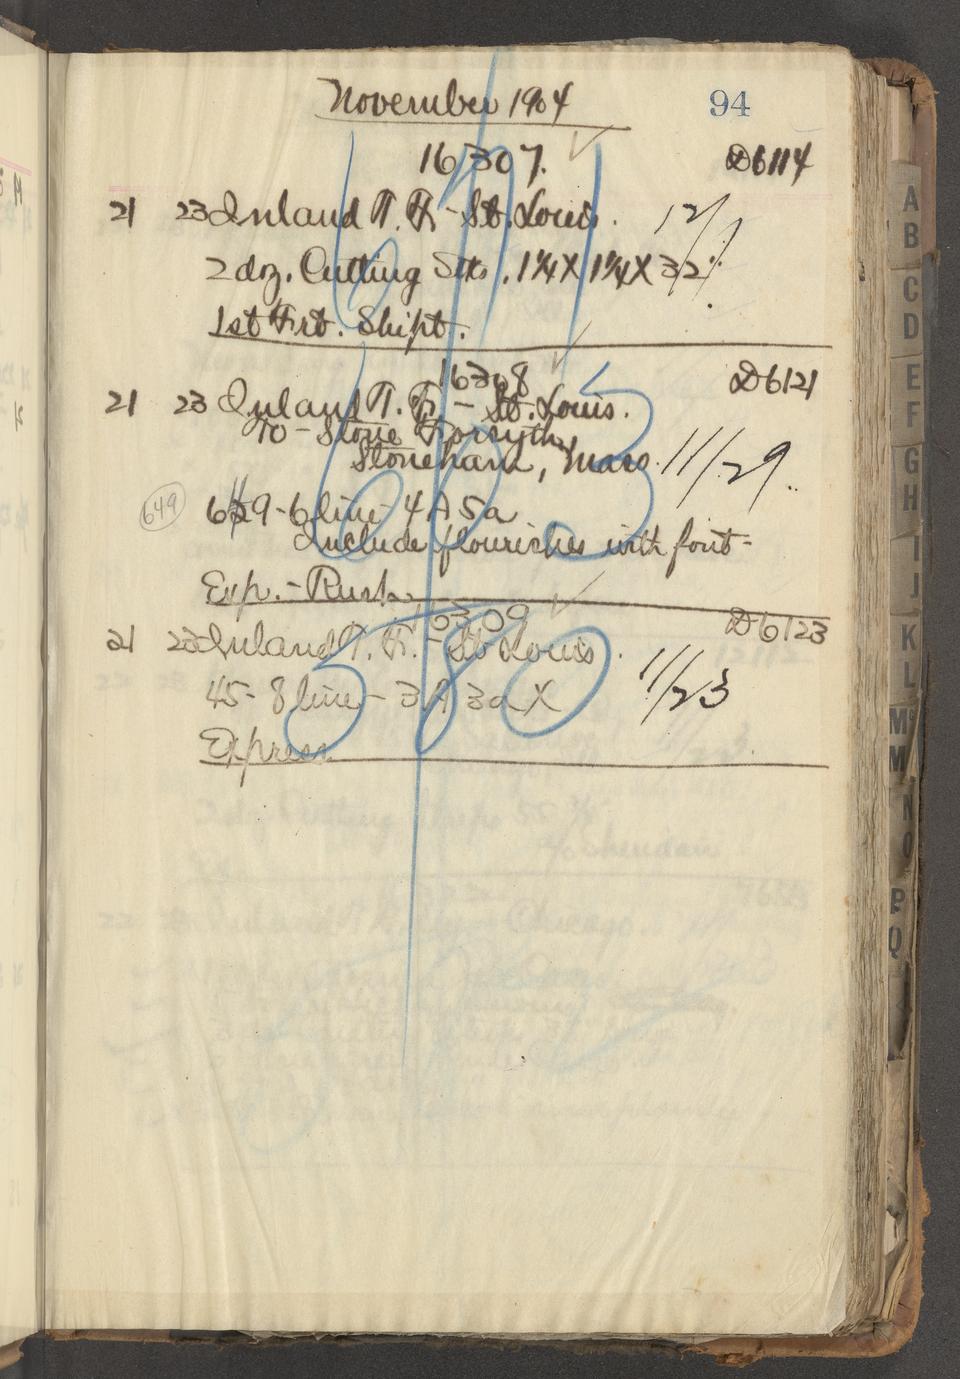 November 1904
94
16307.
D6114
21 23 Inland T. F. - St. Louis. 12/1
2 doz. Cutting Stks. 1¼ X 1¼ X 32"
1st Frt. Shipt.
16308
D6121
21 23 Inland T. F. - St. Louis.
To - Stone Forsyth,
Stoneham, Mass. 11/29
649
649 - 6 line - 4 A 5a
Include flourishes with font -
Exp. - Rush
16309
D6123
21 23 Inland T. F. - St Louis.
45 - 8 line - 3 A 3a X 11/23
Express
380
A
B
C
D
E
F
G
H
I
J
K
L
M
M
N
O
P
Q